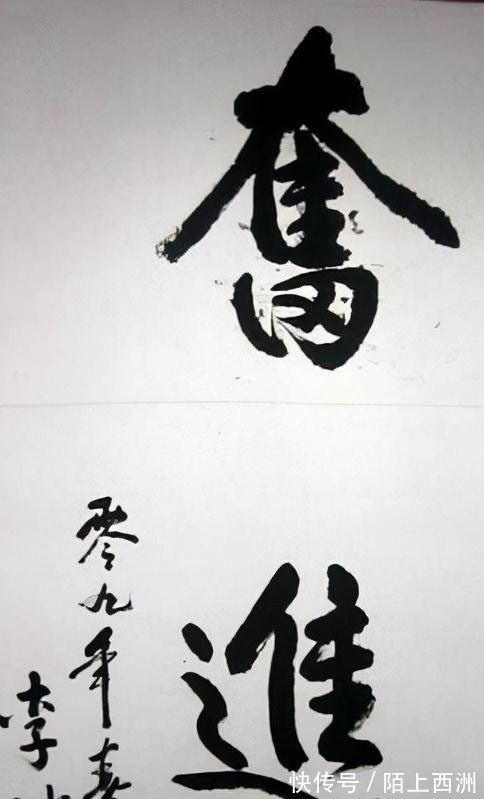 奮
進
零九年春
李
快传号 / 陌上西洲